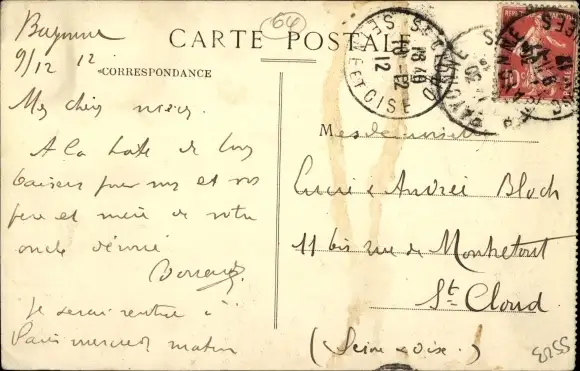 Bayonne
9/12 12
64
CARTE POSTALE
CORRESPONDANCE
SEINE ET OISE
18 40
10 - 12
12
BAYONNE
Mes chères nièces
A la hâte de bons
baisers pour vous et vos
père et mère de votre
oncle dévoué
Je serai rentré à
Paris mercredi matin
Mesdemoiselles
Lucie & Andrée Bloch
11 bis rue de Montretout
St. Cloud
(Seine & Oise.)
8255